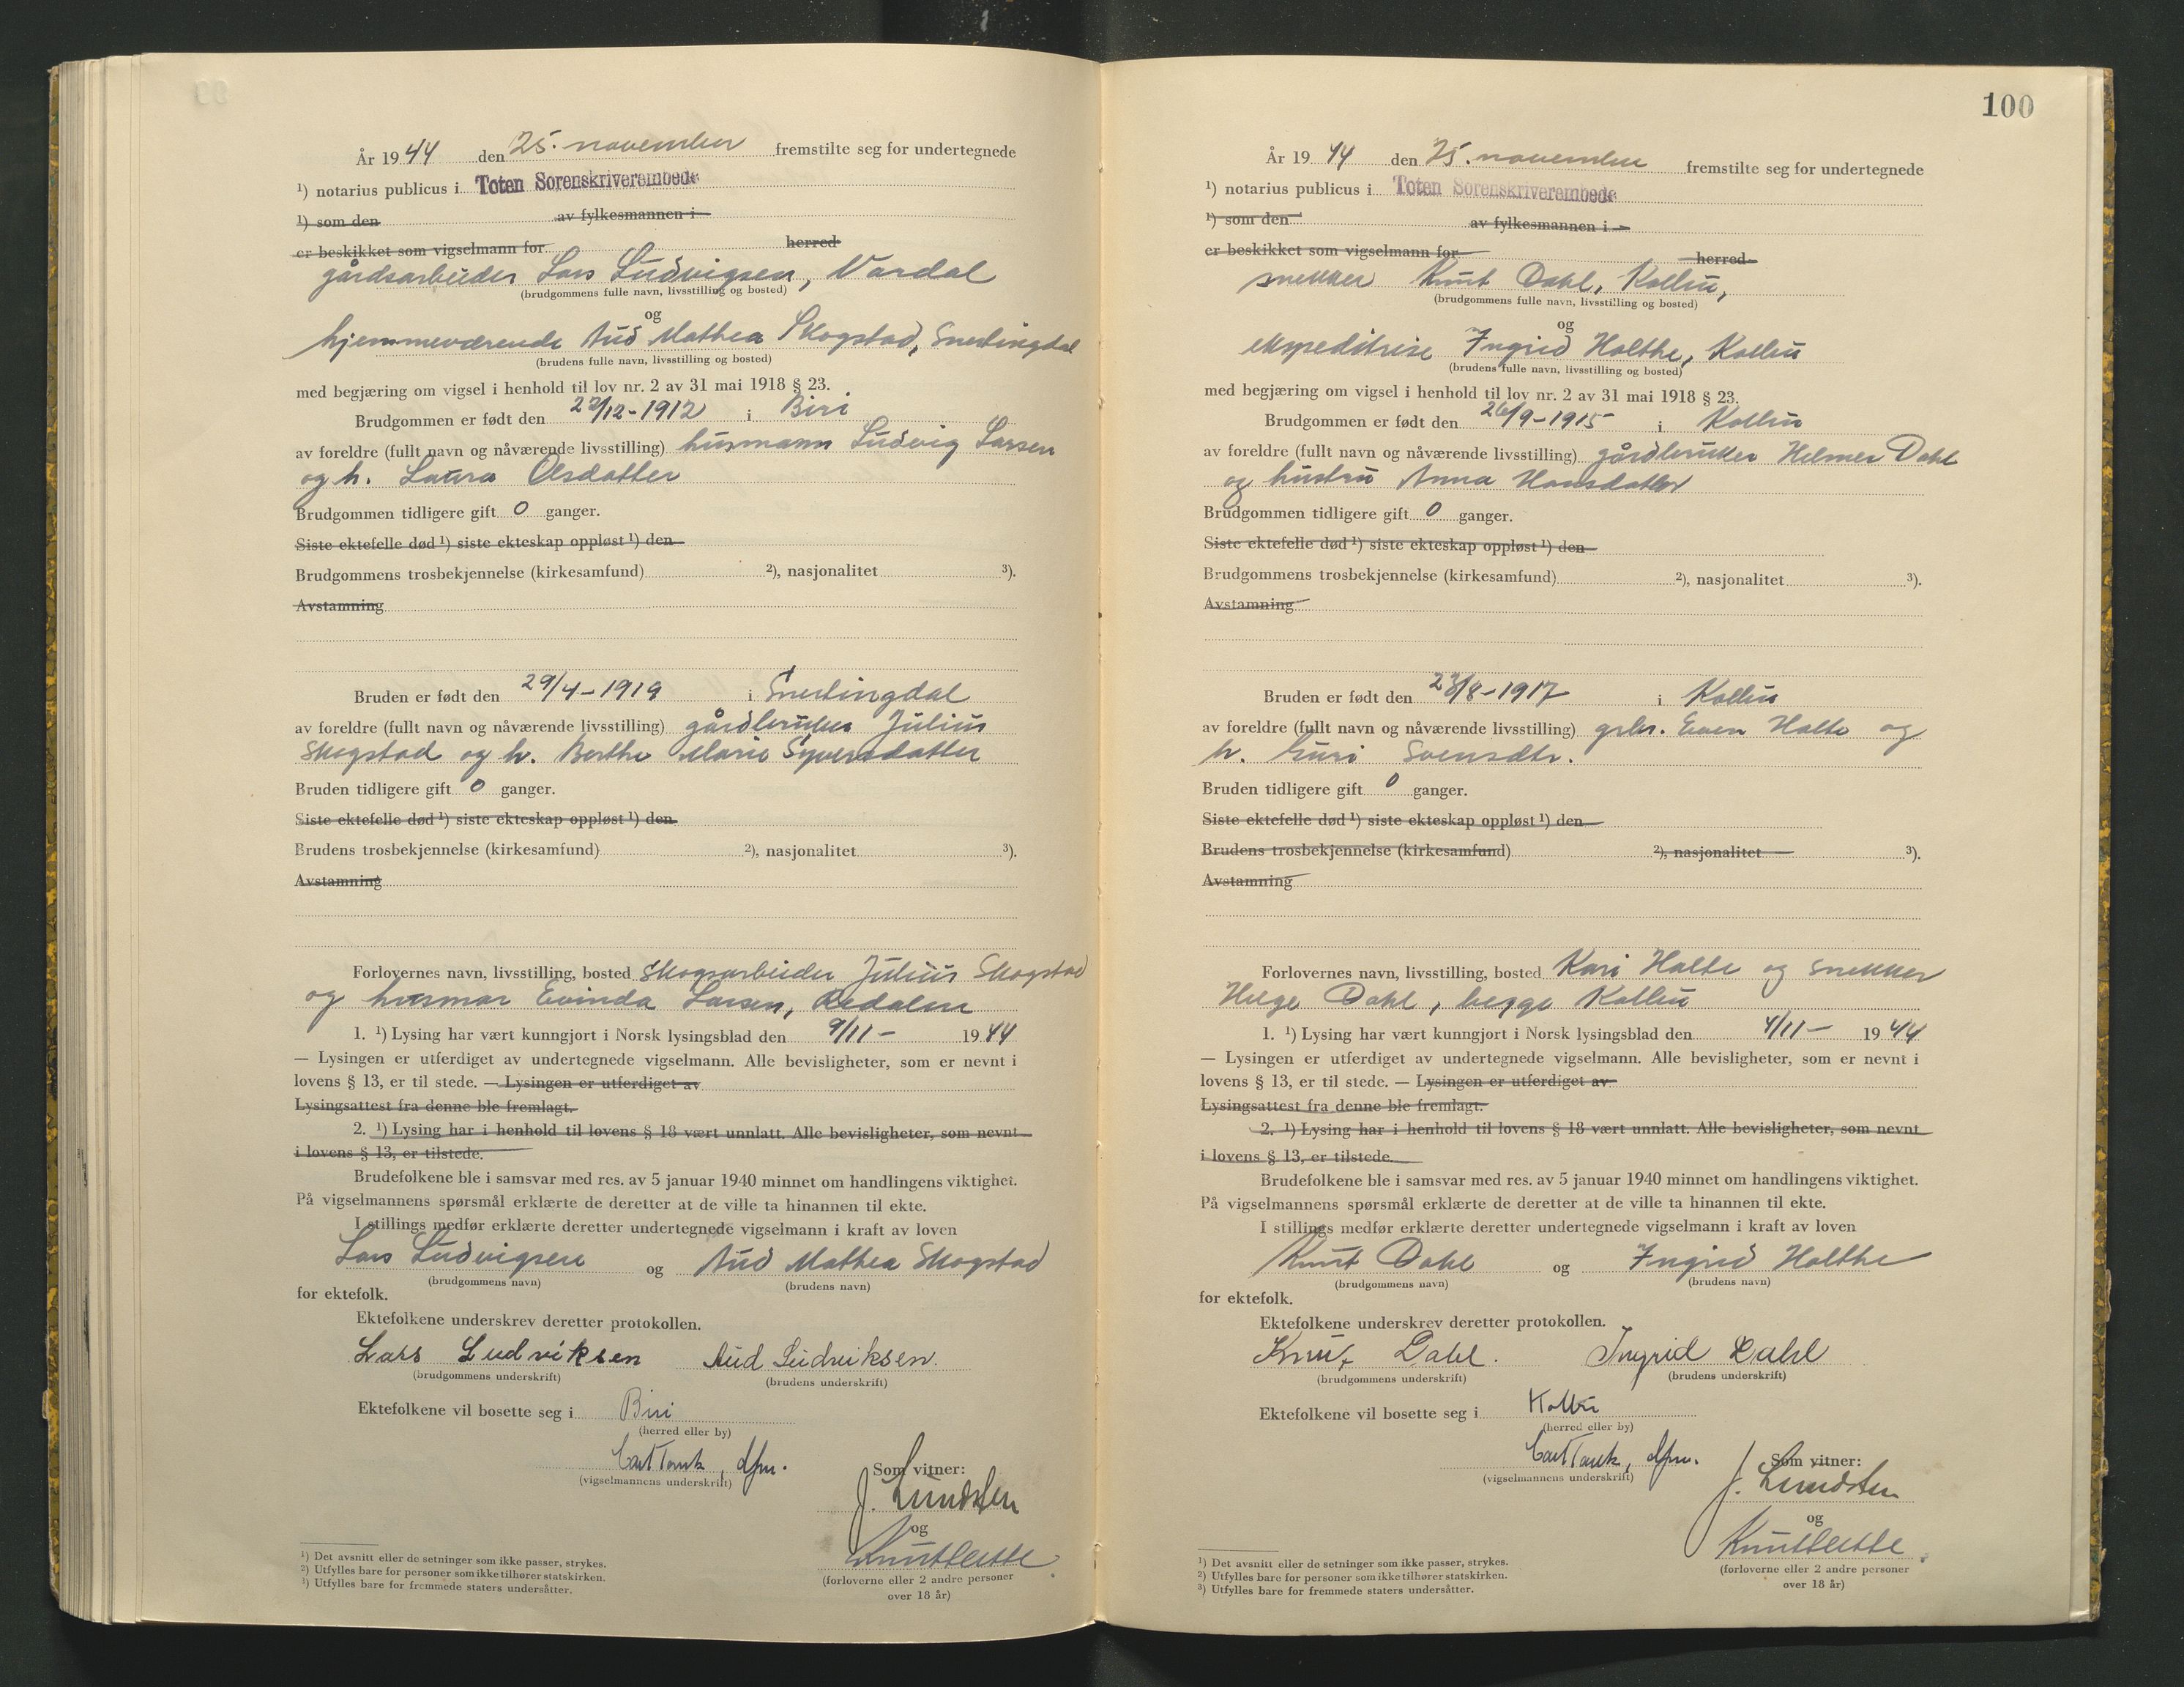 År 1944 den 25. november fremstilte seg for undertegnede
¹) notarius publicus i Toten Sorenskriverembede
¹) som den av fylkesmannen i
er beskikket som vigselmann for herred
gårdsarbeider Lars Ludvigsen, Vardal
(brudgommens fulle navn, livsstilling og bosted)
og
hjemmeværende Aud Mathea Skogstad, Snertingdal
(brudens fulle navn, livsstilling og bosted)
med begjæring om vigsel i henhold til lov nr. 2 av 31 mai 1918 § 23.
Brudgommen er født den 22/12-1912 i Biri
av foreldre (fullt navn og nåværende livsstilling) husmann Ludvig Larsen
og h. Laura Olsdatter
Brudgommen tidligere gift 0 ganger.
Siste ektefelle død ¹) siste ekteskap oppløst ¹) den
Brudgommens trosbekjennelse (kirkesamfund) ²), nasjonalitet ³).
Avstamning
Bruden er født den 29/4-1919 i Snertingdal
av foreldre (fullt navn og nåværende livsstilling) gårdbruker Julius
Skogstad og h. Berthe Marie Syversdatter
Bruden tidligere gift 0 ganger.
Siste ektefelle død ¹) siste ekteskap oppløst ¹) den
Brudens trosbekjennelse (kirkesamfund) ²), nasjonalitet ³).
Avstamning
Forlovernes navn, livsstilling, bosted skogsarbeider Julius Skogstad
og husmor Evinda Larsen, Redalen
1. ¹) Lysing har vært kunngjort i Norsk lysingsblad den 9/11- 1944
— Lysingen er utferdiget av undertegnede vigselmann. Alle bevisligheter, som er nevnt i
lovens § 13, er til stede. — Lysingen er utferdiget av
Lysingsattest fra denne ble fremlagt.
2. ¹) Lysing har i henhold til lovens § 18 vært unnlatt. Alle bevisligheter, som nevnt
i lovens § 13, er tilstede.
Brudefolkene ble i samsvar med res. av 5 januar 1940 minnet om handlingens viktighet.
På vigselmannens spørsmål erklærte de deretter at de ville ta hinannen til ekte.
I stillings medfør erklærte deretter undertegnede vigselmann i kraft av loven
Lars Ludvigsen og Aud Mathea Skogstad
(brudgommens navn) (brudens navn)
for ektefolk.
Ektefolkene underskrev deretter protokollen.
Lars Ludviksen Aud Ludviksen.
(brudgommens underskrift) (brudens underskrift)
Ektefolkene vil bosette seg i Biri
(herred eller by)
Carl Tank, dfm.
(vigselmannens underskrift) Som vitner:
J. Lundsten
og
(forloverne eller 2 andre personer
over 18 år)
¹) Det avsnitt eller de setninger som ikke passer, strykes.
²) Utfylles bare for personer som ikke tilhører statskirken.
³) Utfylles bare for fremmede staters undersåtter.
100
År 1944 den 25. november fremstilte seg for undertegnede
¹) notarius publicus i Toten Sorenskriverembede
¹) som den av fylkesmannen i
er beskikket som vigselmann for herred
snekker Knut Dahl, Kolbu,
(brudgommens fulle navn, livsstilling og bosted)
og
ekspeditrise Ingrid Holthe, Kolbu
(brudens fulle navn, livsstilling og bosted)
med begjæring om vigsel i henhold til lov nr. 2 av 31 mai 1918 § 23.
Brudgommen er født den 26/9-1915 i Kolbu
av foreldre (fullt navn og nåværende livsstilling) gårdbruker Helmer Dahl
og hustru Anna Hansdatter
Brudgommen tidligere gift 0 ganger.
Siste ektefelle død ¹) siste ekteskap oppløst ¹) den
Brudgommens trosbekjennelse (kirkesamfund) ²), nasjonalitet ³).
Avstamning
Bruden er født den 23/8-1917 i Kolbu
av foreldre (fullt navn og nåværende livsstilling) grbr. Even Holte og
h. Guri Svensdtr.
Bruden tidligere gift 0 ganger.
Siste ektefelle død ¹) siste ekteskap oppløst ¹) den
Brudens trosbekjennelse (kirkesamfund) ²), nasjonalitet ³).
Avstamning
Forlovernes navn, livsstilling, bosted Kari Holte og snekker
Helge Dahl, begge Kolbu
1. ¹) Lysing har vært kunngjort i Norsk lysingsblad den 4/11- 1944
— Lysingen er utferdiget av undertegnede vigselmann. Alle bevisligheter, som er nevnt i
lovens § 13, er til stede. — Lysingen er utferdiget av
Lysingsattest fra denne ble fremlagt.
2. ¹) Lysing har i henhold til lovens § 18 vært unnlatt. Alle bevisligheter, som nevnt
i lovens § 13, er tilstede.
Brudefolkene ble i samsvar med res. av 5 januar 1940 minnet om handlingens viktighet.
På vigselmannens spørsmål erklærte de deretter at de ville ta hinannen til ekte.
I stillings medfør erklærte deretter undertegnede vigselmann i kraft av loven
Knut Dahl og Ingrid Holthe
(brudgommens navn) (brudens navn)
for ektefolk.
Ektefolkene underskrev deretter protokollen.
Knut Dahl. Ingrid Dahl
(brudgommens underskrift) (brudens underskrift)
Ektefolkene vil bosette seg i Kolbu
(herred eller by)
Carl Tank, dfm.
(vigselmannens underskrift) Som vitner:
J. Lundsten
og
(forloverne eller 2 andre personer
over 18 år)
¹) Det avsnitt eller de setninger som ikke passer, strykes.
²) Utfylles bare for personer som ikke tilhører statskirken.
³) Utfylles bare for fremmede staters undersåtter.